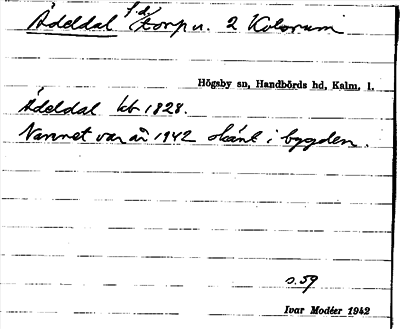 Ådeldal f.d. torp u. 2 Kolorum
Högsby sn, Handbörds hd, Kalm. l.
Ådeldal kb 1828.
Namnet var än 1942 känt i bygden.
s. 59
Ivar Modéer 1942